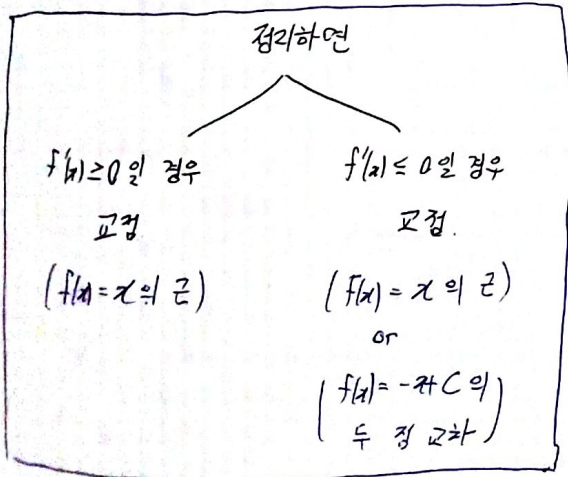 정리하면
f'(x)≥0일 경우
교점.
(f(x)=x의 근)
f'(x)≤0일 경우
교점.
(f(x)=x의 근)
or
(f(x)=-x+C의
두 점 교차)